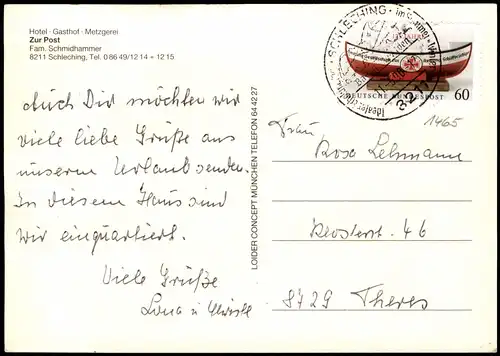 Hotel · Gasthof · Metzgerei
Zur Post
Fam. Schmidhammer
8211 Schleching, Tel. 0 86 49/12 14 + 12 15
Auch Dir möchten wir
viele liebe Grüße aus
unserem Urlaub senden.
In diesem Haus sind
wir einquartiert.
Viele Grüße
Lona u.
LOIDER CONCEPT MÜNCHEN TELEFON 64 42 27
SCHLECHING · im Sommer
8211
DEUTSCHE BUNDESPOST
60
1465
Frau
Rosa Lehmann
Klosterst. 46
8729 Theres